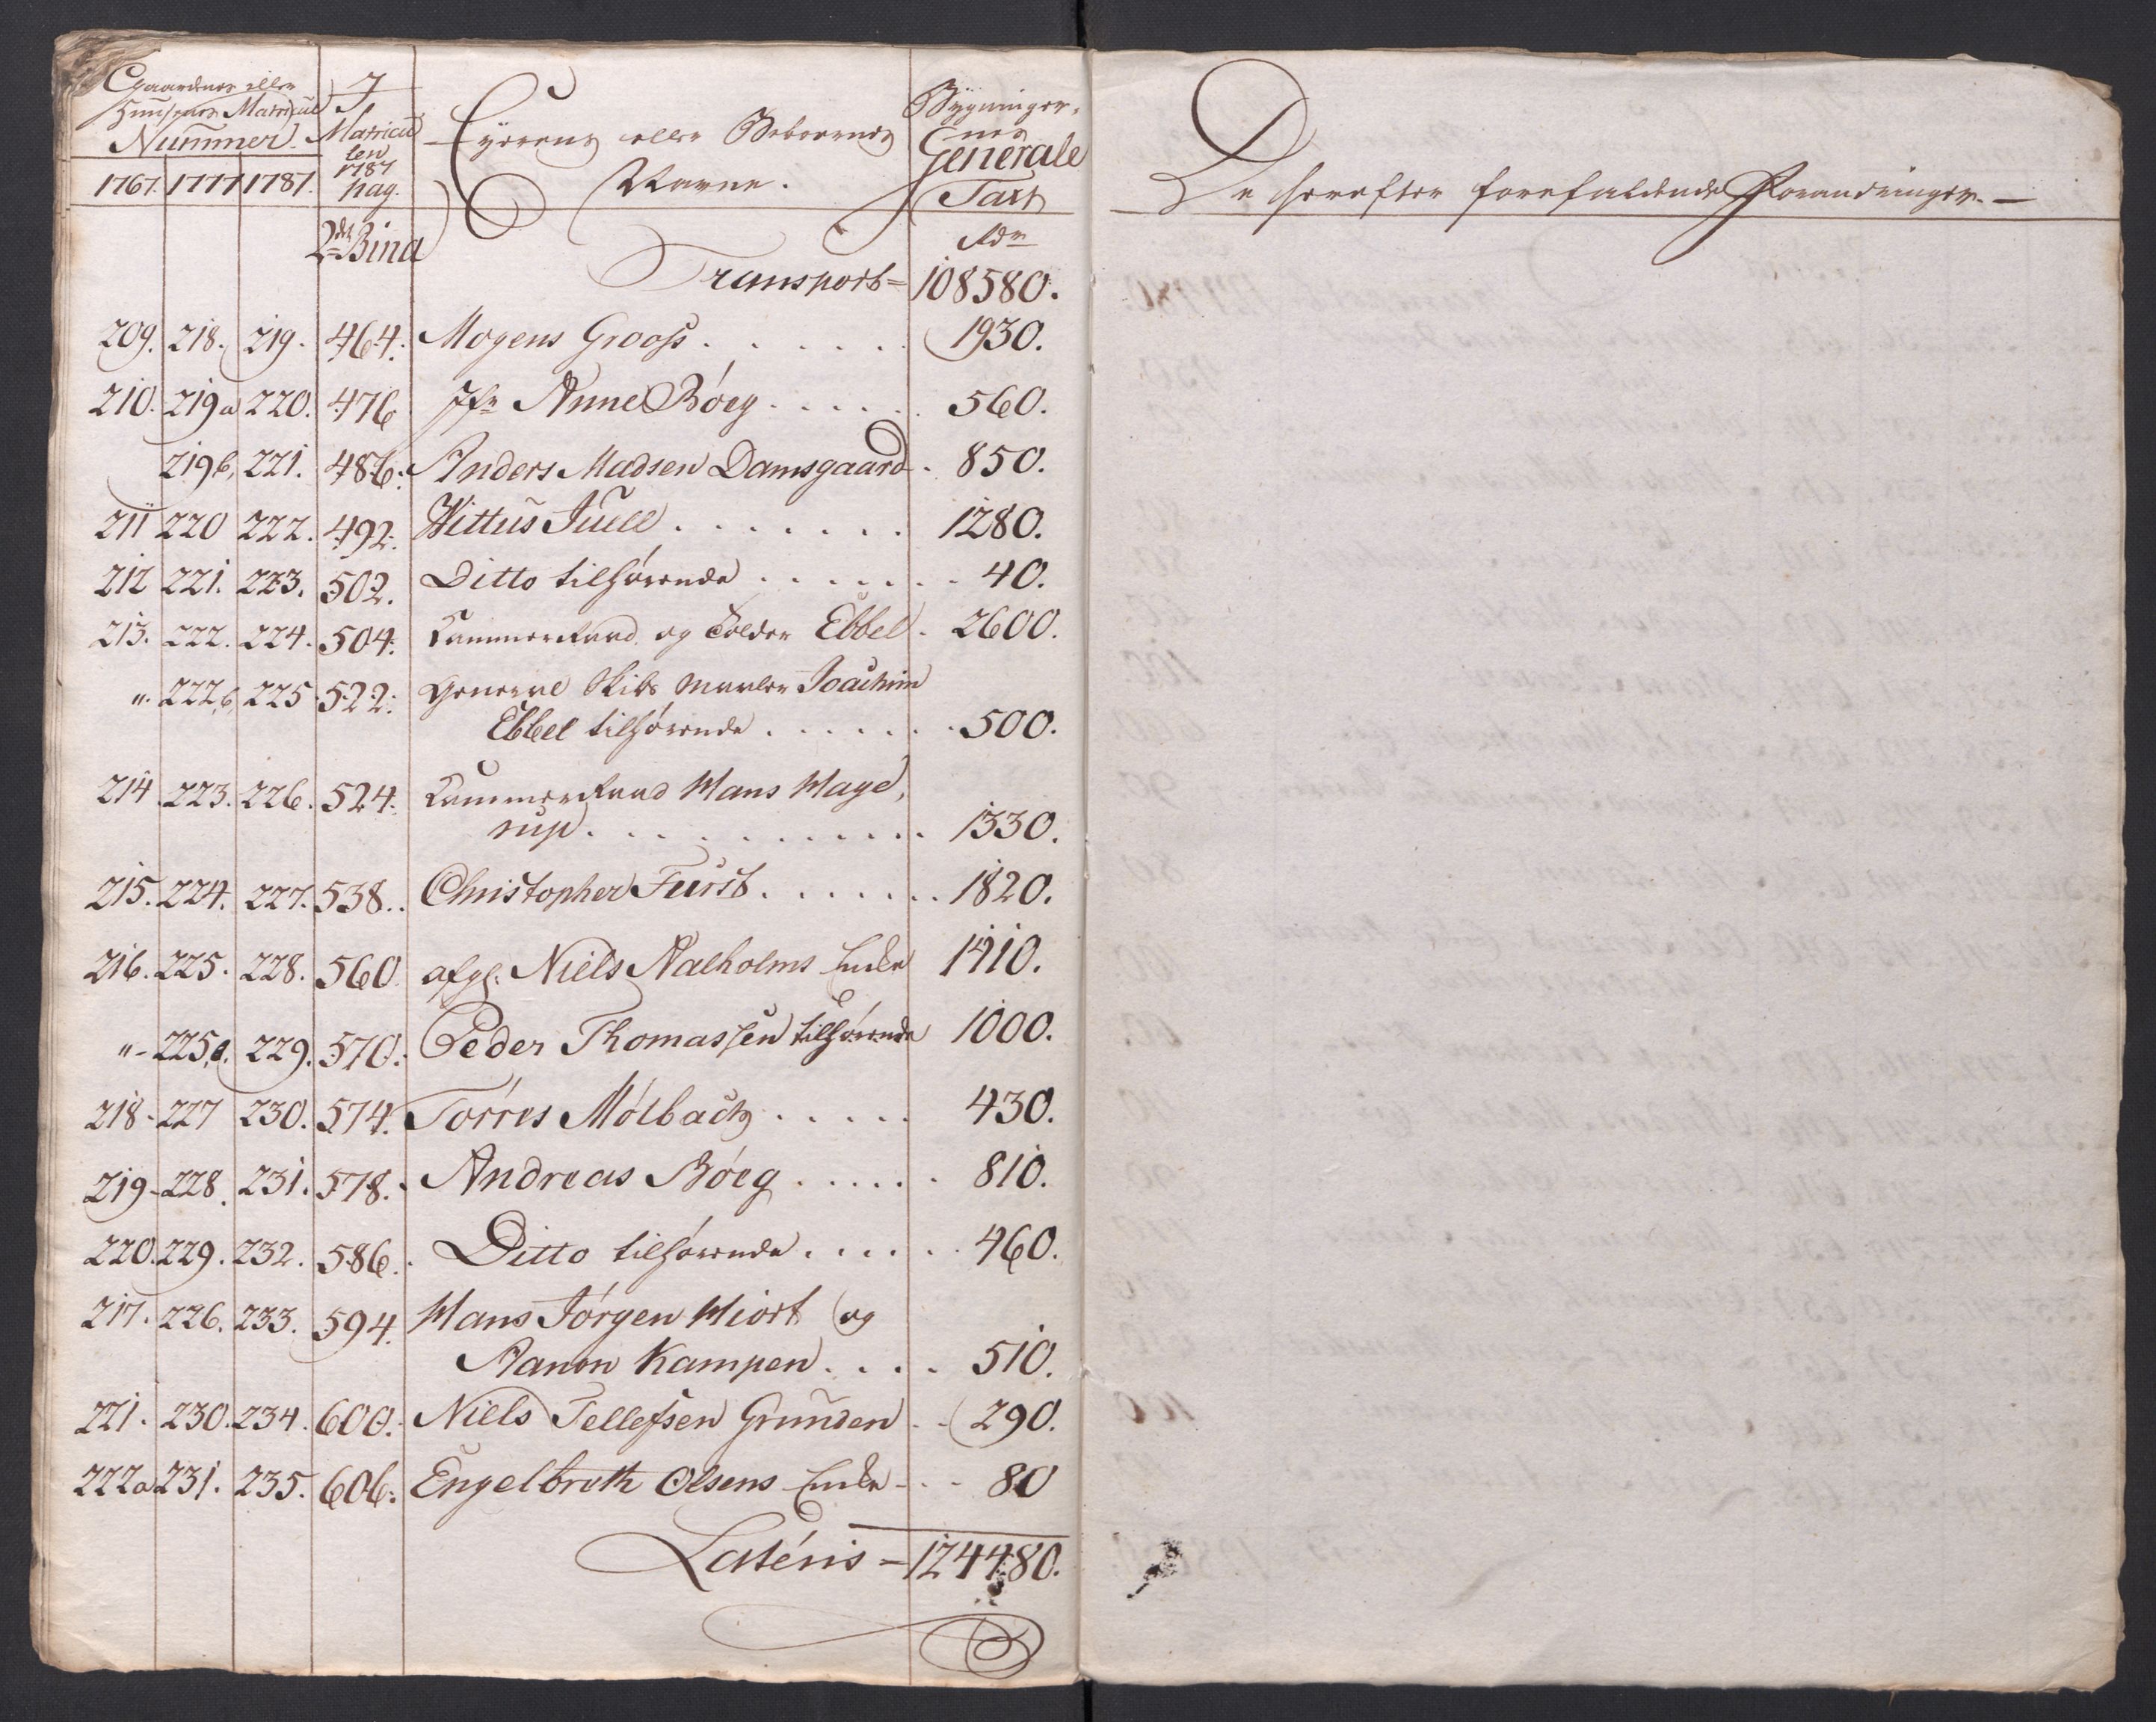 Gaardenes eller
Huusenes Matricul
Nummer.
1767. 1777 1787.
I Matricu
len
1787
pag.
Eyerens eller Beboerens
Navne.
Bygninger
nes
Generale
Taxt
2det Bind
Rdr
Transport = 108580.
209. 218. 219. 464. Mogens Grooss . . . . . . 1930.
210. 219a 220. 476 Jfr Anne Böeg . . . . . . 560.
219b, 221. 486. Anders Madsen Damsgaard . 850.
211 220 222. 492. Wittus Juell . . . . . . . 1280.
212 221. 223. 502. Ditto tilhörende . . . . . . . 40.
213. 222. 224. 504. Kammerraad og Tolder Ebbel . 2600.
". 222,b 225 522. General Krigs Maaler Joachim
Ebbel tilhörende . . . . . . . 500.
214. 223. 226. 524. Kammerraad Hans Hage,
rup . . . . . . . . . . . 1330.
215. 224. 227. 538. Christopher Fürst . . . . . . . 1820.
216. 225. 228. 560. afg: Niels Aalholms Enke 1410.
"- 225,a. 229. 570. Peder Thomassen tilhörende 1000.
218 - 227 230. 574. Törres Mölbach . . . . . 430.
219 - 228. 231. 578. Andreas Böeg . . . . . . 810.
220. 229. 232. 586. Ditto tilhörende . . . . . . 460.
217. 226. 233. 594. Hans Jörgen Hiort og
Aanon Kampen . . . . 510.
221. 230. 234. 600. Niels Tellefsen Grunden . . 290.
222a 231. 235. 606. Engelbreth Olsens Enke - . - 80
Lateris = 124480.
De herefter forefaldende Forandringer. —